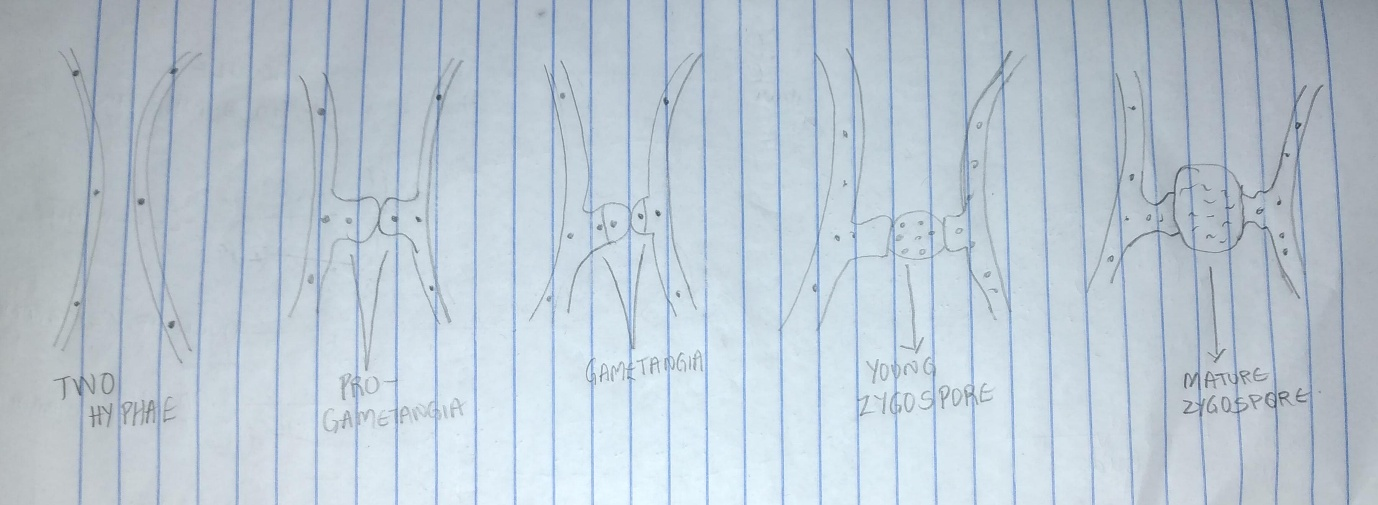 TWO
HYPHAE
PRO-
GAMETANGIA
GAMETANGIA
YOUNG
ZYGOSPORE
MATURE
ZYGOSPORE.